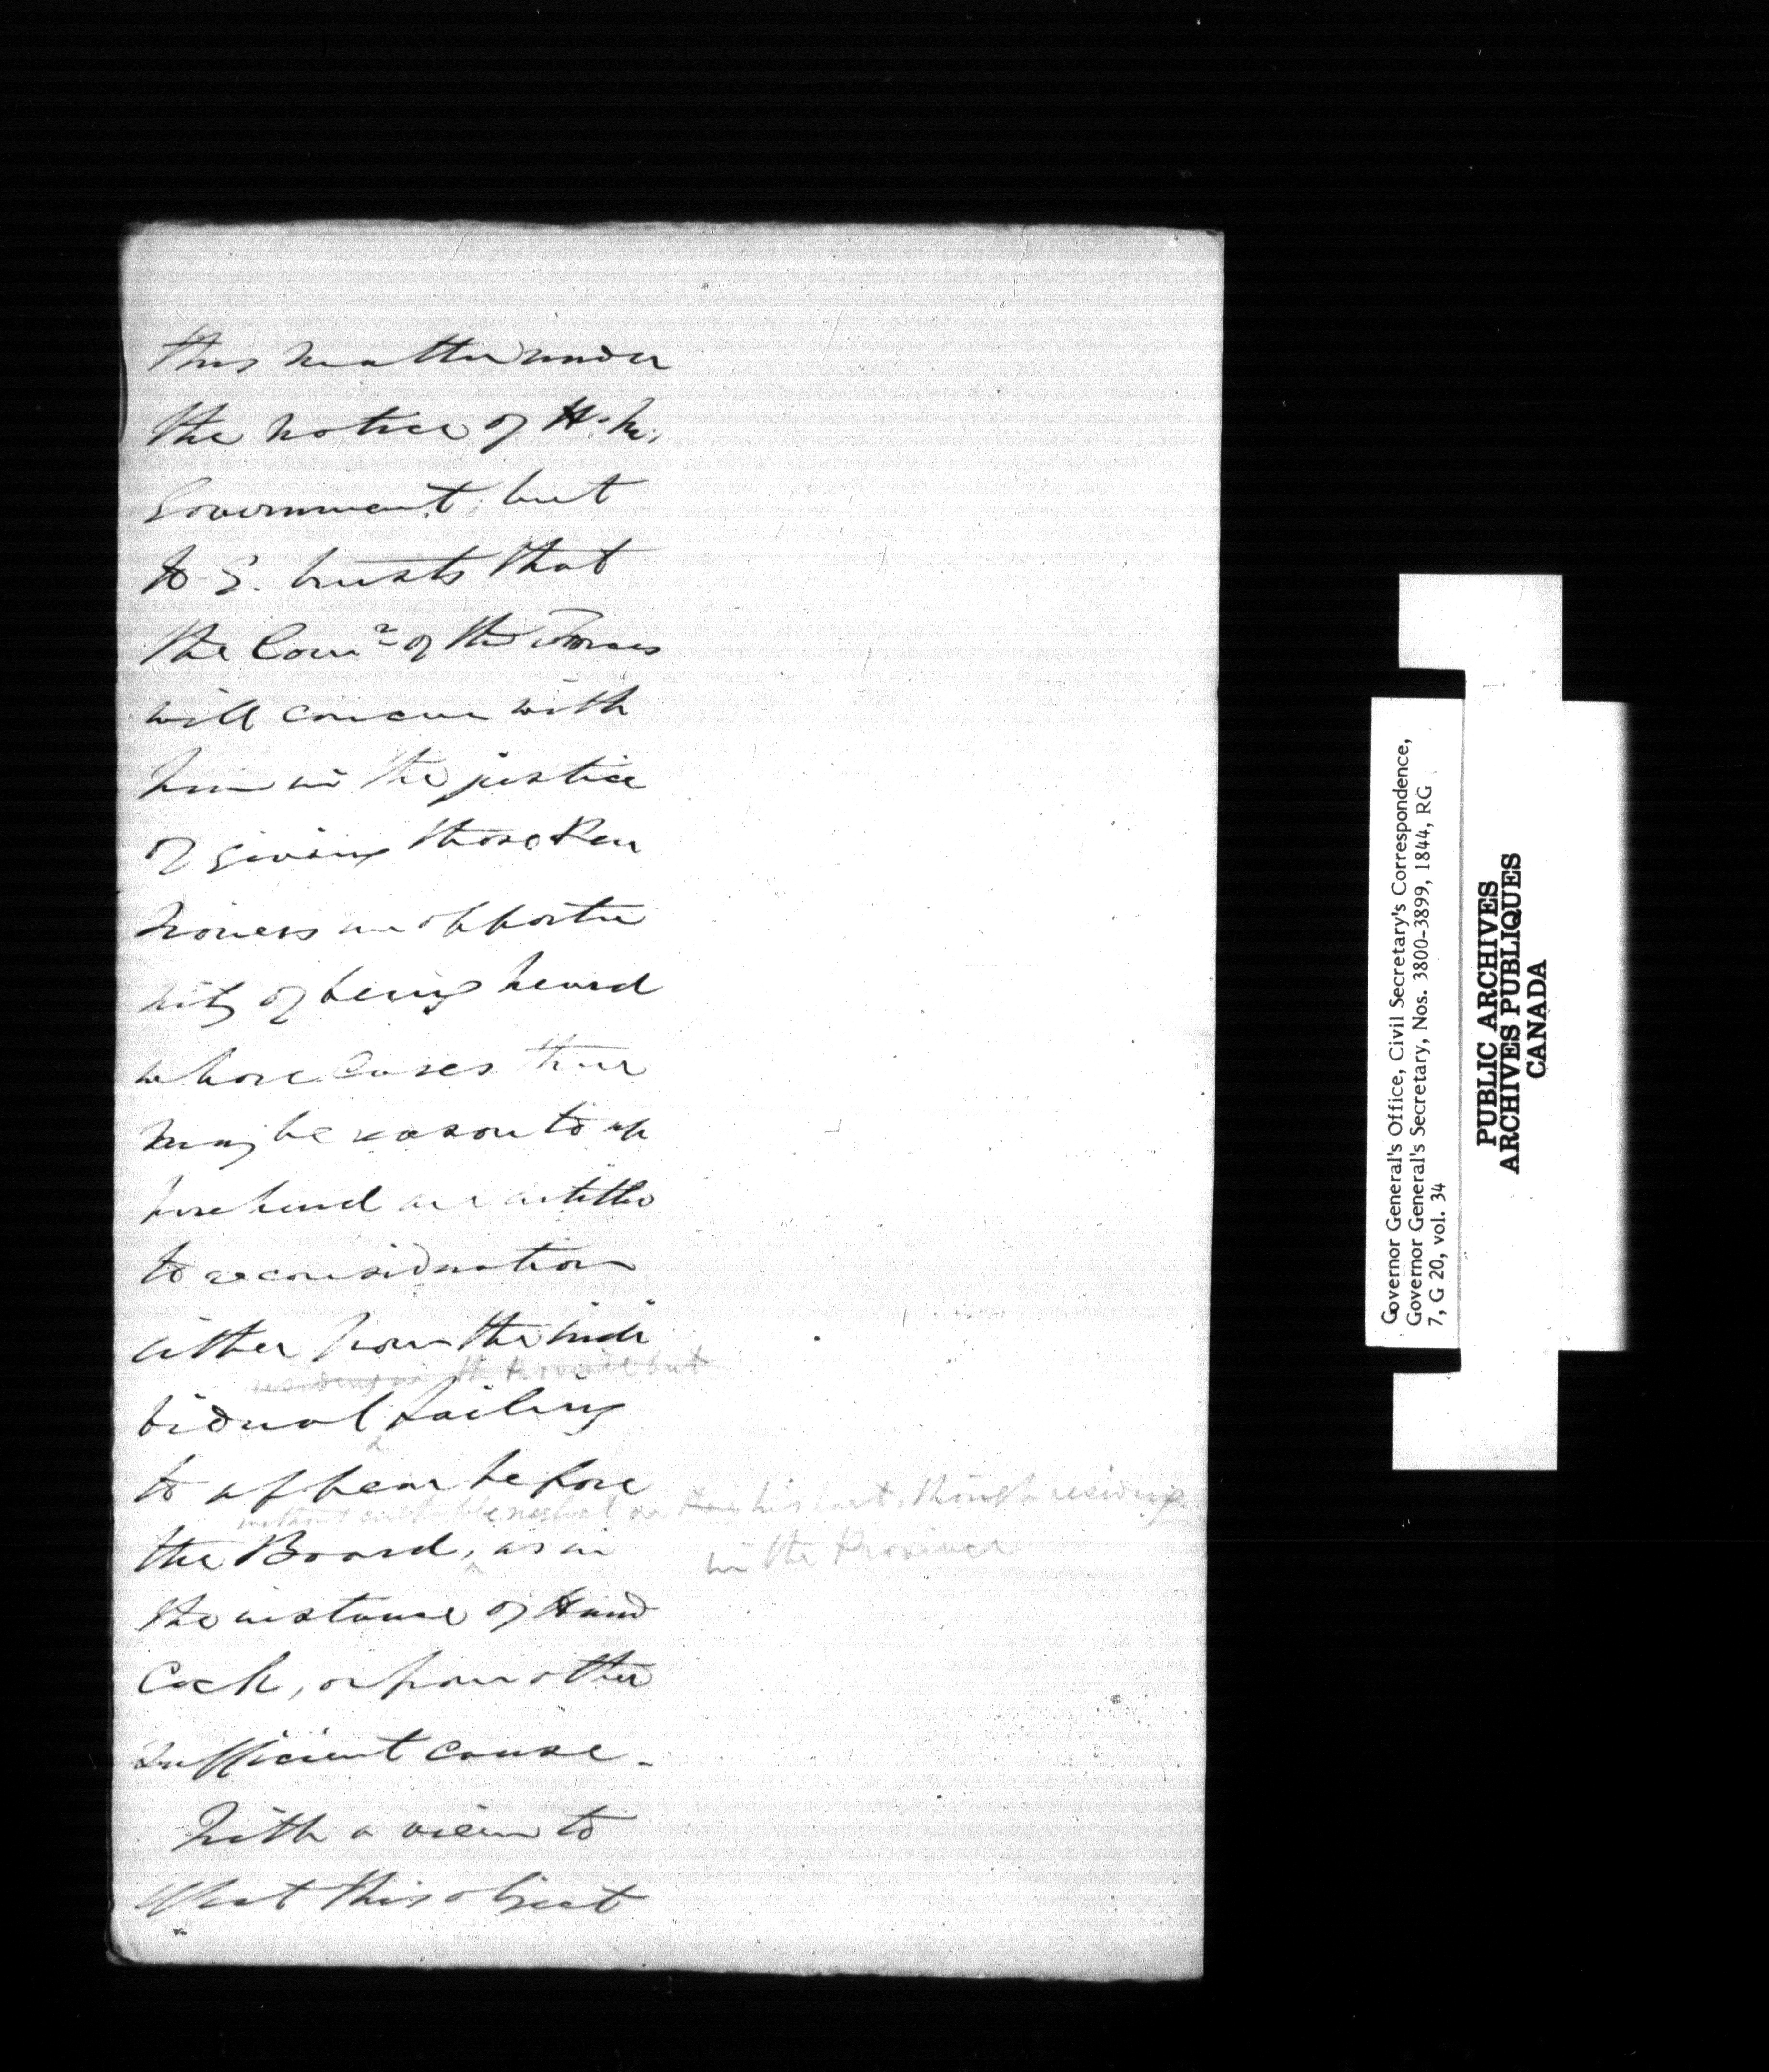 this matter under
the notice of H. M.
Government; but
H. E. trusts that
the Comr of the Forces
will concur with
him in the justice
of giving those Pen
sioners an opportu
nity of being heard
whose Cases there
may be reason to ap
prehend are entitled
to reconsideration
either from the indi
residing in the Province but
vidual failing
to appear before
without culpable neglect on his part, though residing
in the Province
the Board, as in
the instance of Hand
Cock, or from other
sufficient cause.
With a view to
effect this object
Governor General's Office, Civil Secretary's Correspondence,
Governor General's Secretary, Nos. 3800-3899, 1844, RG
7, G 20, vol. 34
PUBLIC ARCHIVES
ARCHIVES PUBLIQUES
CANADA